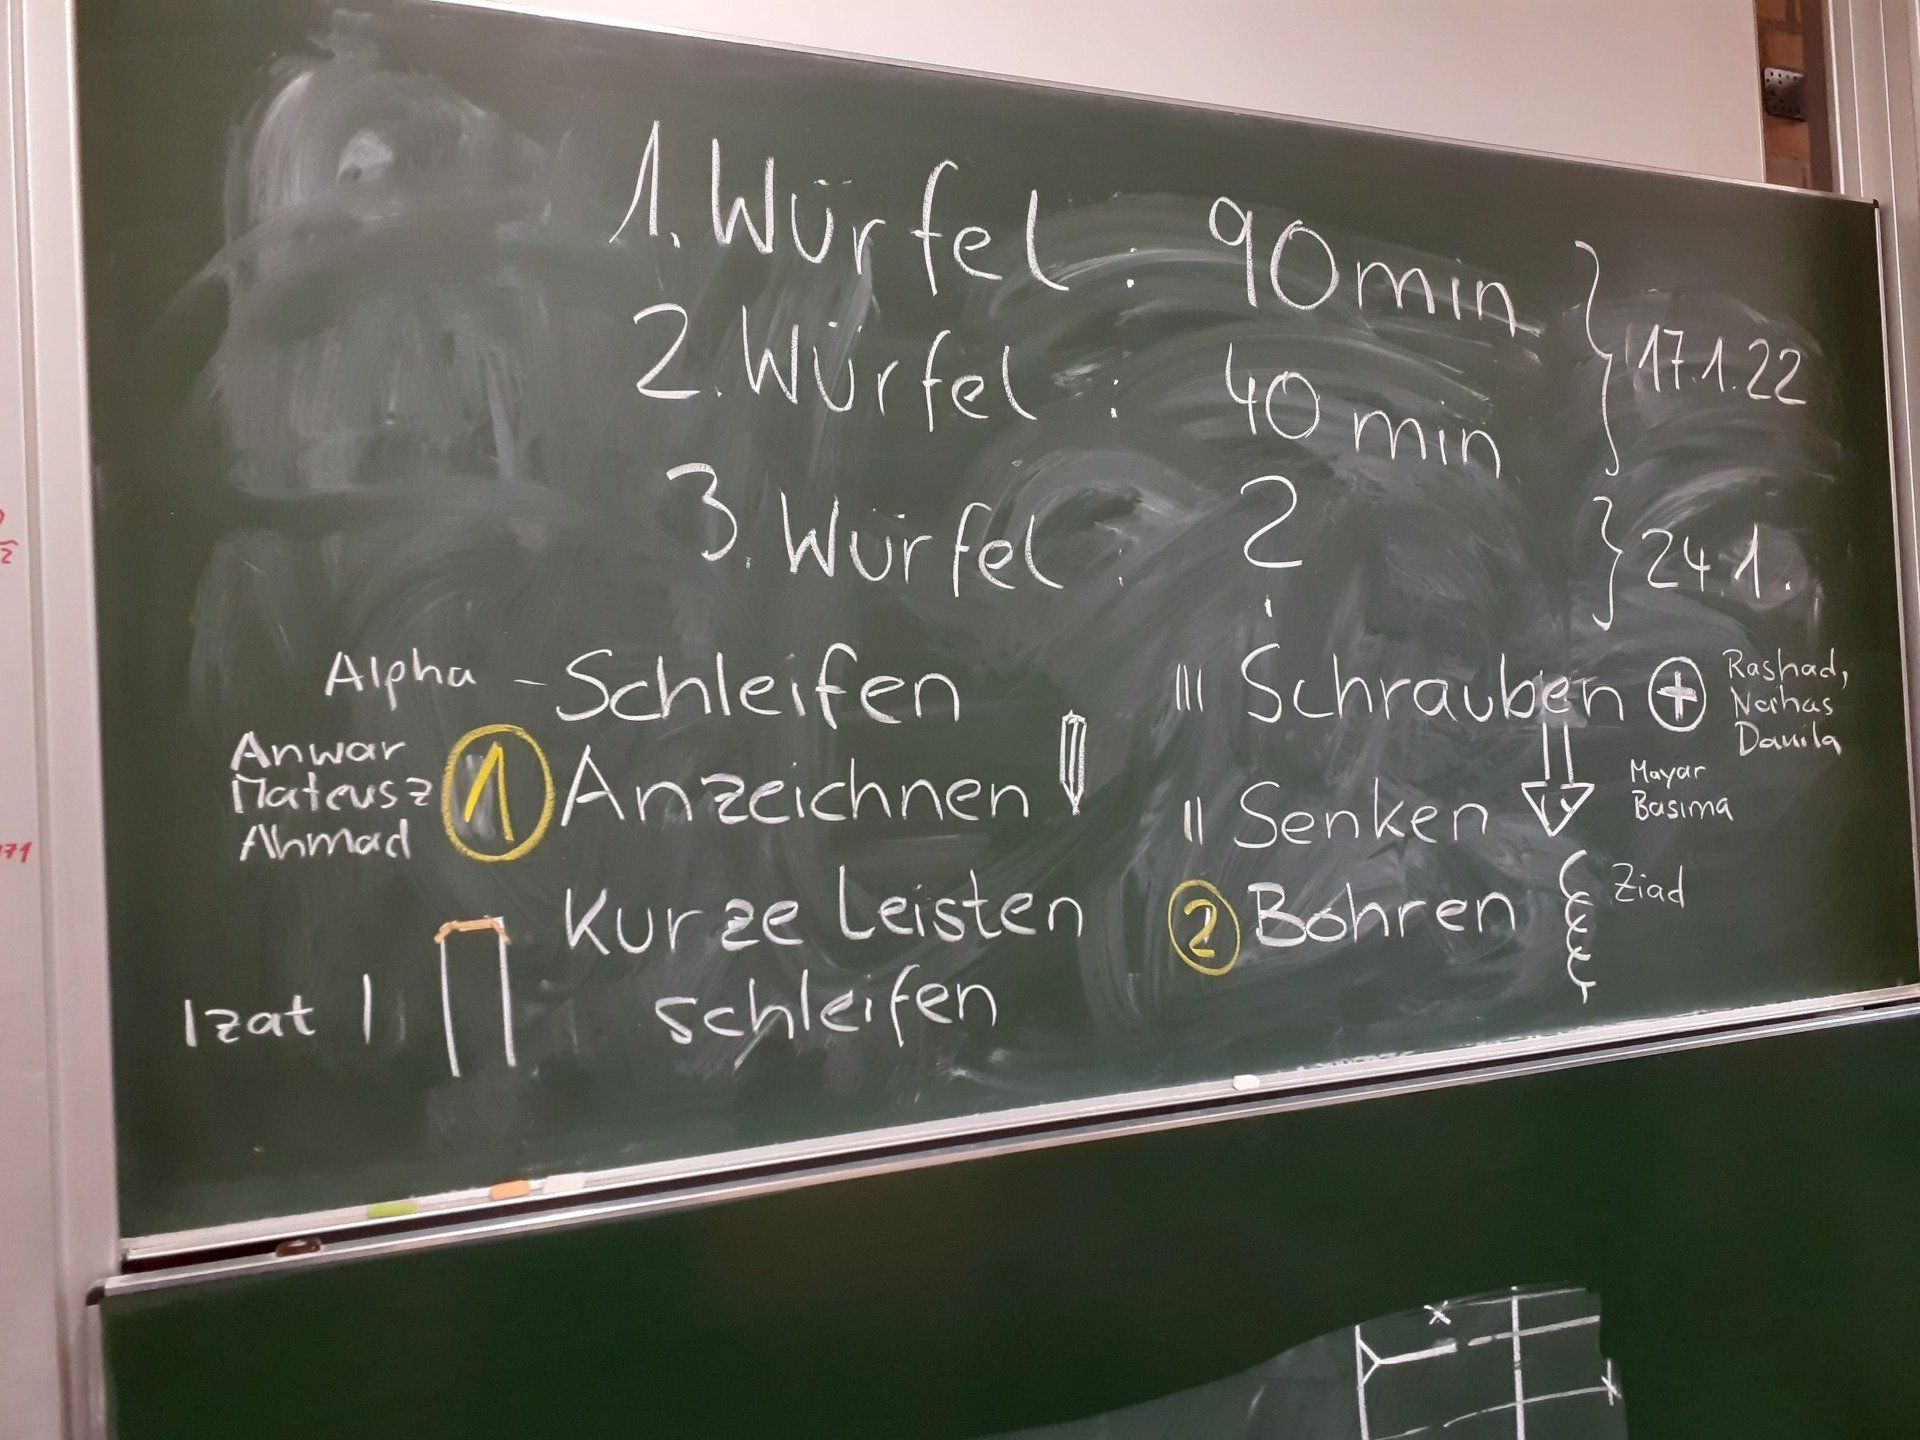 1. Würfel : 90min
2. Würfel : 40min
17.1.22
3. Würfel : ?
24.1.
Alpha - Schleifen
Anwar
Mateusz
Ahmad
1 Anzeichnen
Kurze Leisten
schleifen
Izat |
||| Schrauben
Rashad,
Nahas
Danila
|| Senken
Mayar
Basima
2 Bohren
Ziad
x
x